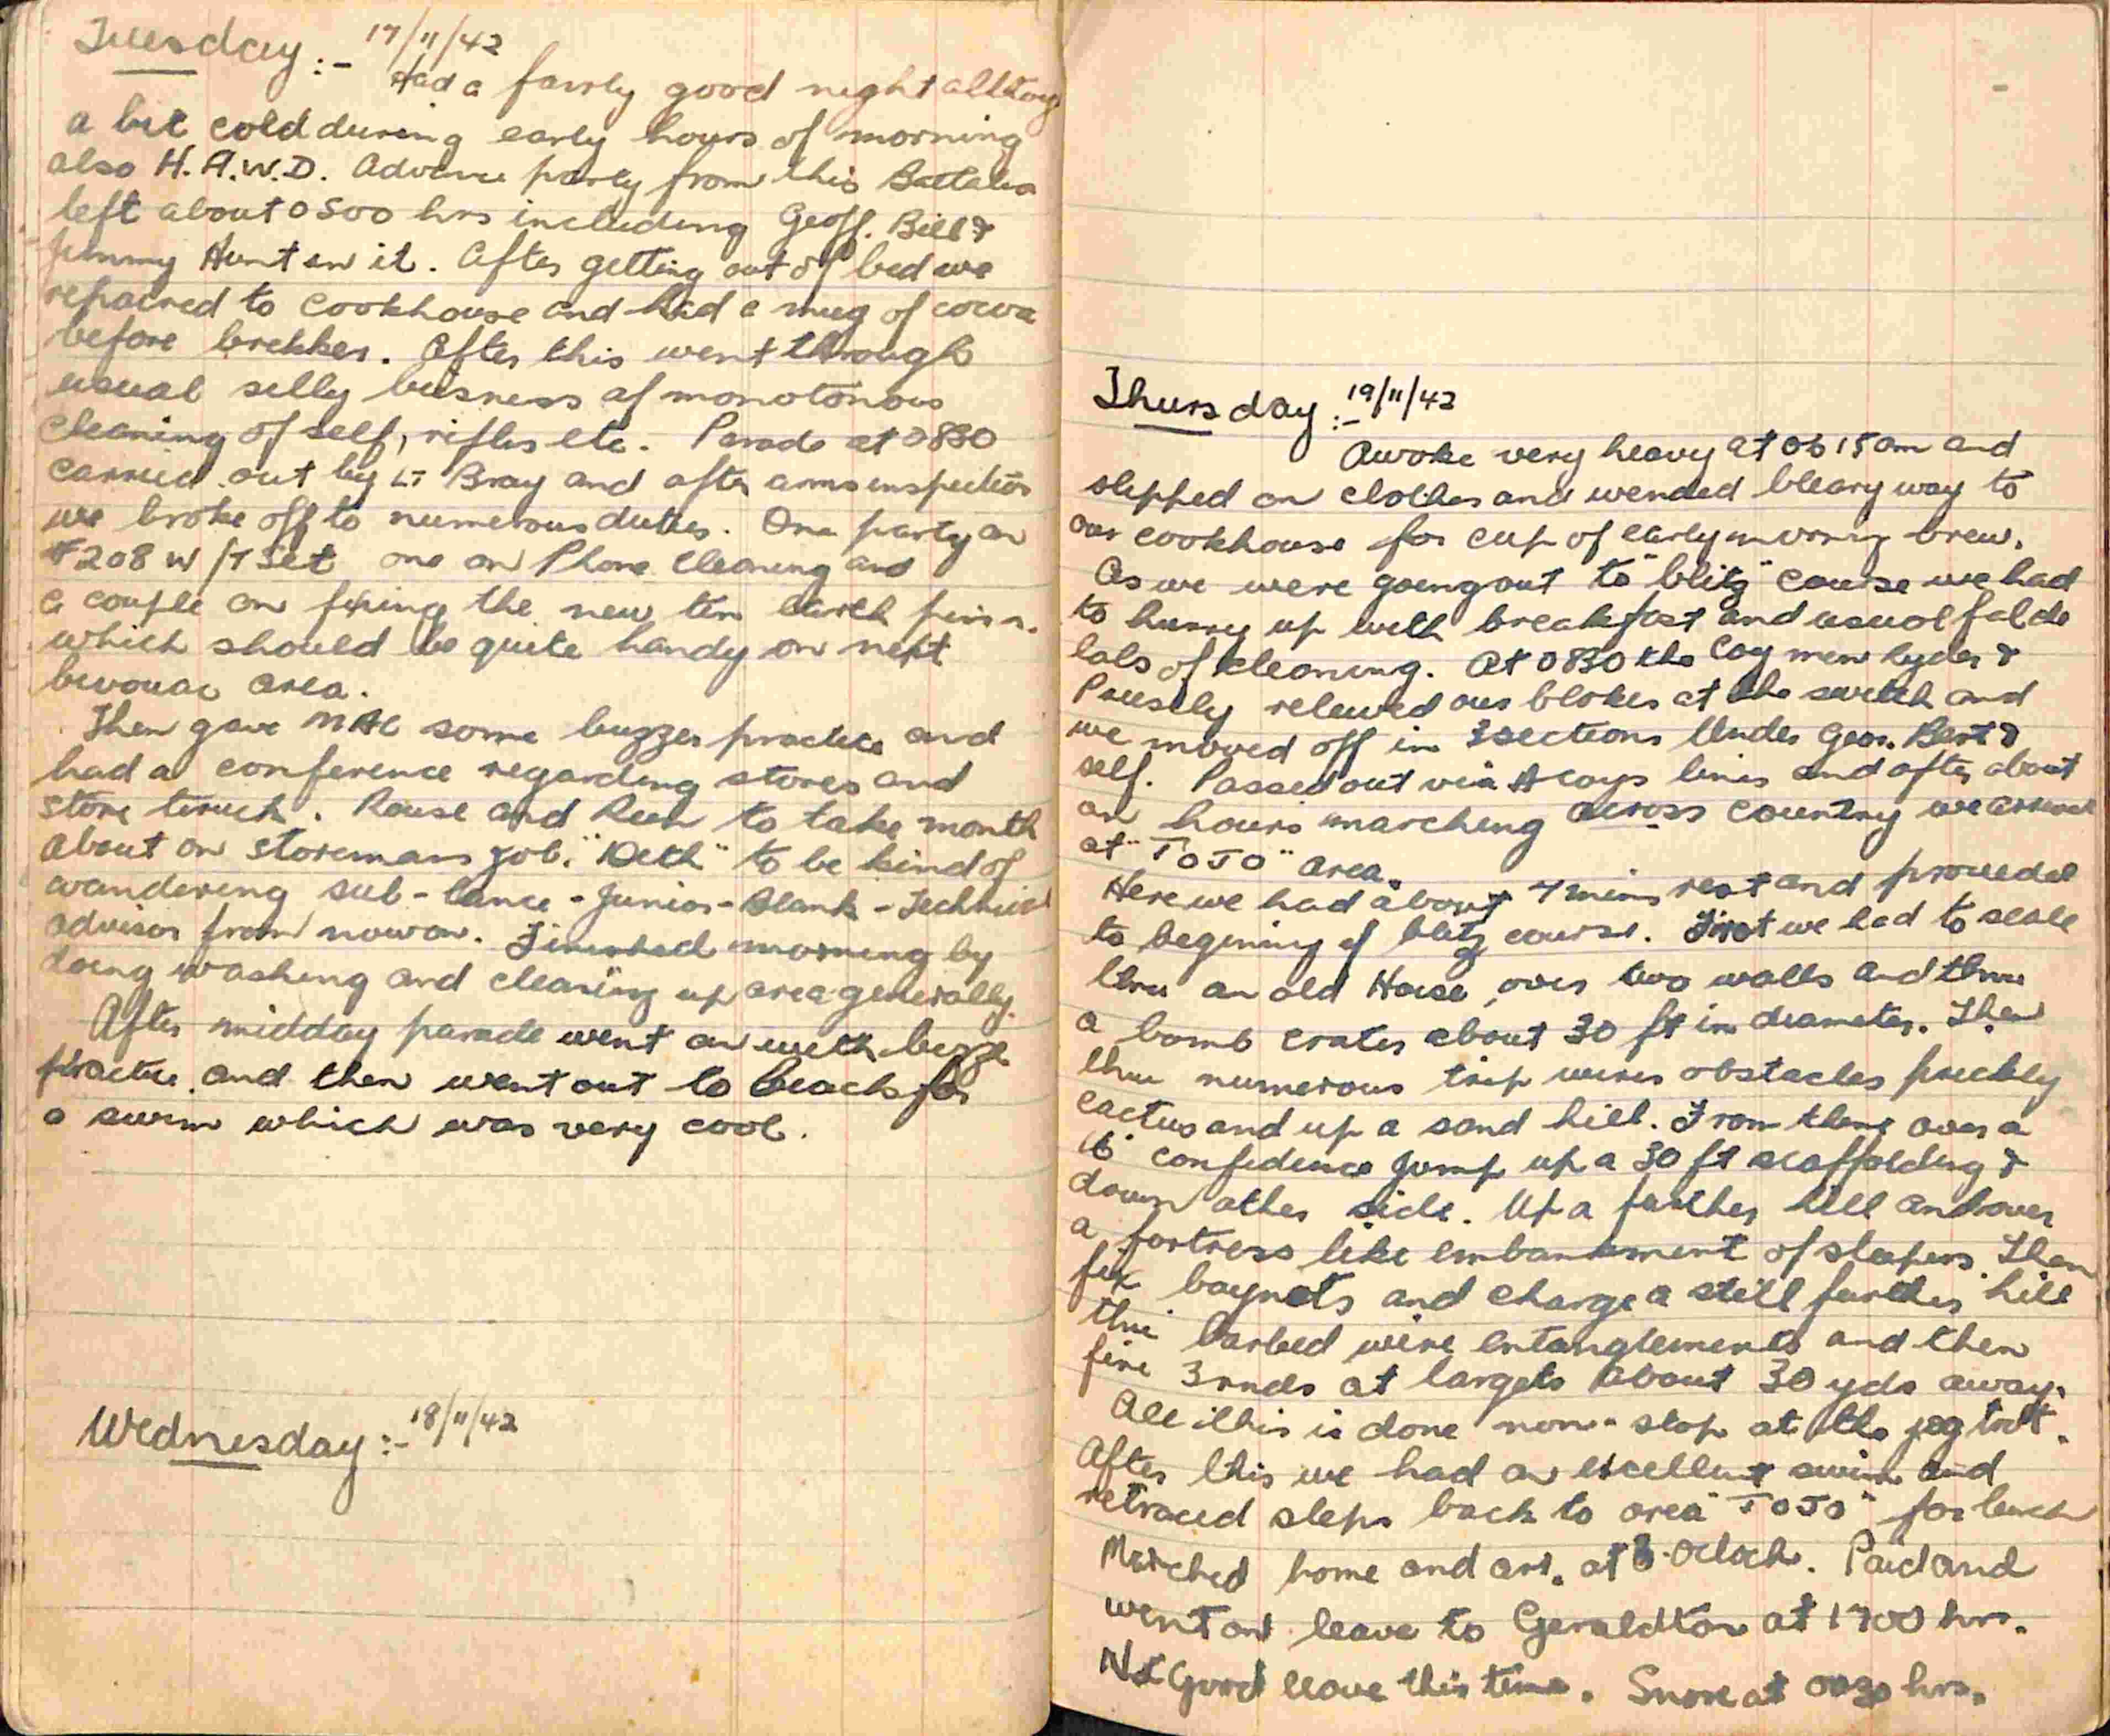 Tuesday :- 17/11/42
Had a fairly good night althoug
a bit cold during early hours of morning
also H.A.W.D. Advance party from this Battalion
left about 0500 hrs including Geoff. Bill &
Jimmy Hunt in it. After getting out of bed we
repaired to cookhouse and had a mug of cocoa
before brekker. After this went through
usual silly buisness of monotonous
cleaning of self, rifles etc. Parade at 0830
carried out by LT Bray and after arms inspection
we broke off to numerous duties. One party on
#208 W/T Set one on Phone cleaning and
a couple on fixing the new ten earth pins.
which should be quite handy on next
bivouac area.
Then gave MAC some buzzer practice and
had a conference regarding stores and
store truck. Rouse and to take month
about on storemans job. "Deth" to be kind of
wandering sub-lance-Junior-Blank-Technical
advisor from now on. Finished morning by
doing washing and cleaning up area generally.
After midday parade went on with buzz
practice and then went out to beach for
a swim which was very cool.
Wednesday :- 18/11/42
Thursday :- 19/11/42
Awoke very heavy at 0615 am and
slipped on clothes and wended bleary way to
our cookhouse for cup of early morning brew.
As we were going out to "blitz" course we had
to hurry up with breakfast and usual falde
lals of cleaning. At 0830 the Coy men Ryder &
relieved our blokes at the switch and
we moved off in 3 sections Under Geor. Bert &
self. Passed out via A coys lines and after about
an hours marching across country we arrived
at "TOJO" area.
Here we had about 4 mins rest and proceeded
to begining of blitz course. First we had to scale
thru an old House, over two walls and thru
a bomb crater about 30 ft in diameter. Then
thru numerous trip wires obstacles prickly
cactus and up a sand hill. From there over a
16' confidence jump up a 30 ft scaffolding &
down other side. Up a further hill and over
a fortress like embankment of sleepers. Then
fix baynets and charge a still further hill
thru barbed wire entanglements and then
fire 3 rnds at targets about 30 yds away.
All this is done non-stop at the jog trot.
After this we had an excellent swim and
retraced steps back to area "TOJO" for lunch
Marched home and arr. at 3. Oclock. Paid and
went on leave to Geraldton at 1700 hrs.
Not Good leave this time. Snore at 0030 hrs.